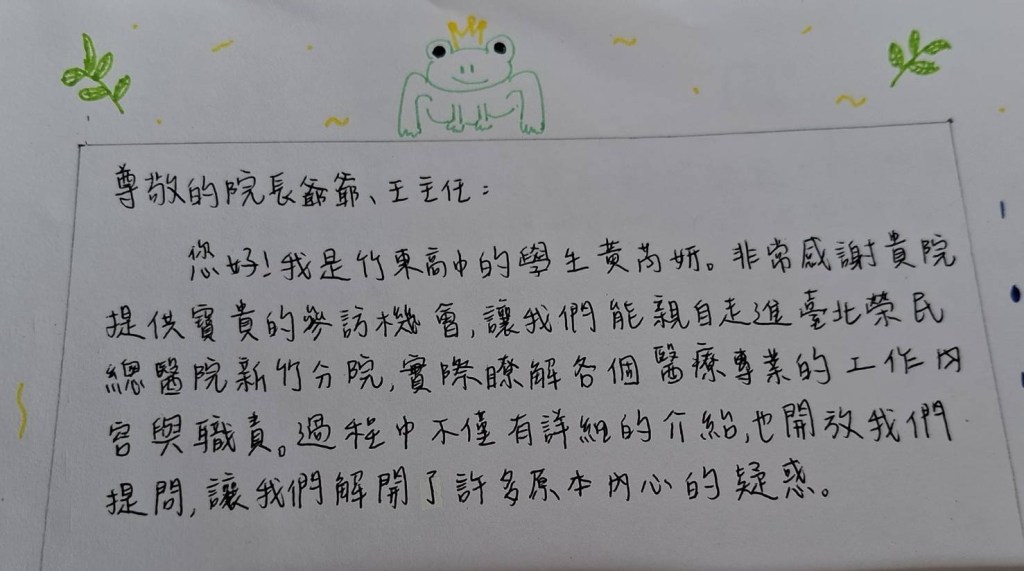 尊敬的院長爺爺、王主任：
您好!我是竹東高中的學生黃芮妍。非常感謝貴院
提供寶貴的參訪機會,讓我們能親自走進臺北榮民
總醫院新竹分院,實際瞭解各個醫療專業的工作內
容與職責。過程中不僅有詳細的介紹,也開放我們
提問,讓我們解開了許多原本內心的疑惑。